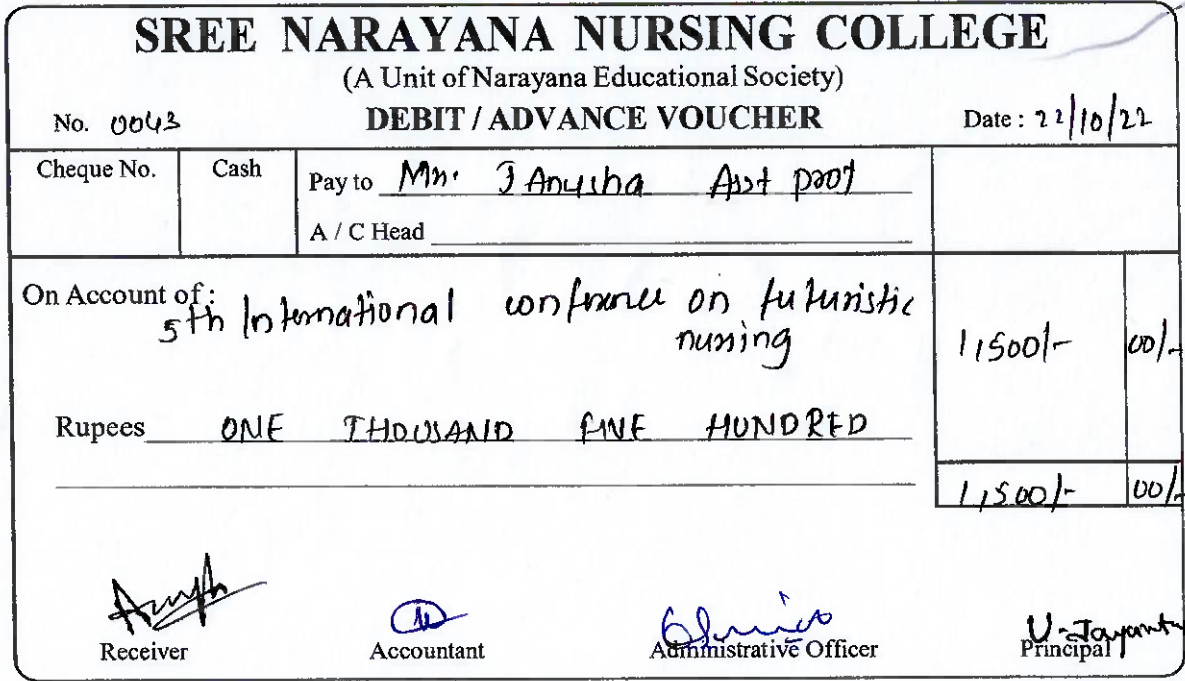 SREE NARAYANA NURSING COLLEGE
(A Unit of Narayana Educational Society)
No. 0043 DEBIT / ADVANCE VOUCHER Date : 22/10/22
Cheque No. Cash Pay to Mrs. J Anusha Asst prof
A / C Head
On Account of :
5th International conference on futuristic
nursing 1,500/- 00/-
Rupees ONE THOUSAND FIVE HUNDRED
1,500/- 00/-
U. Jayanth
Receiver Accountant Administrative Officer Principal